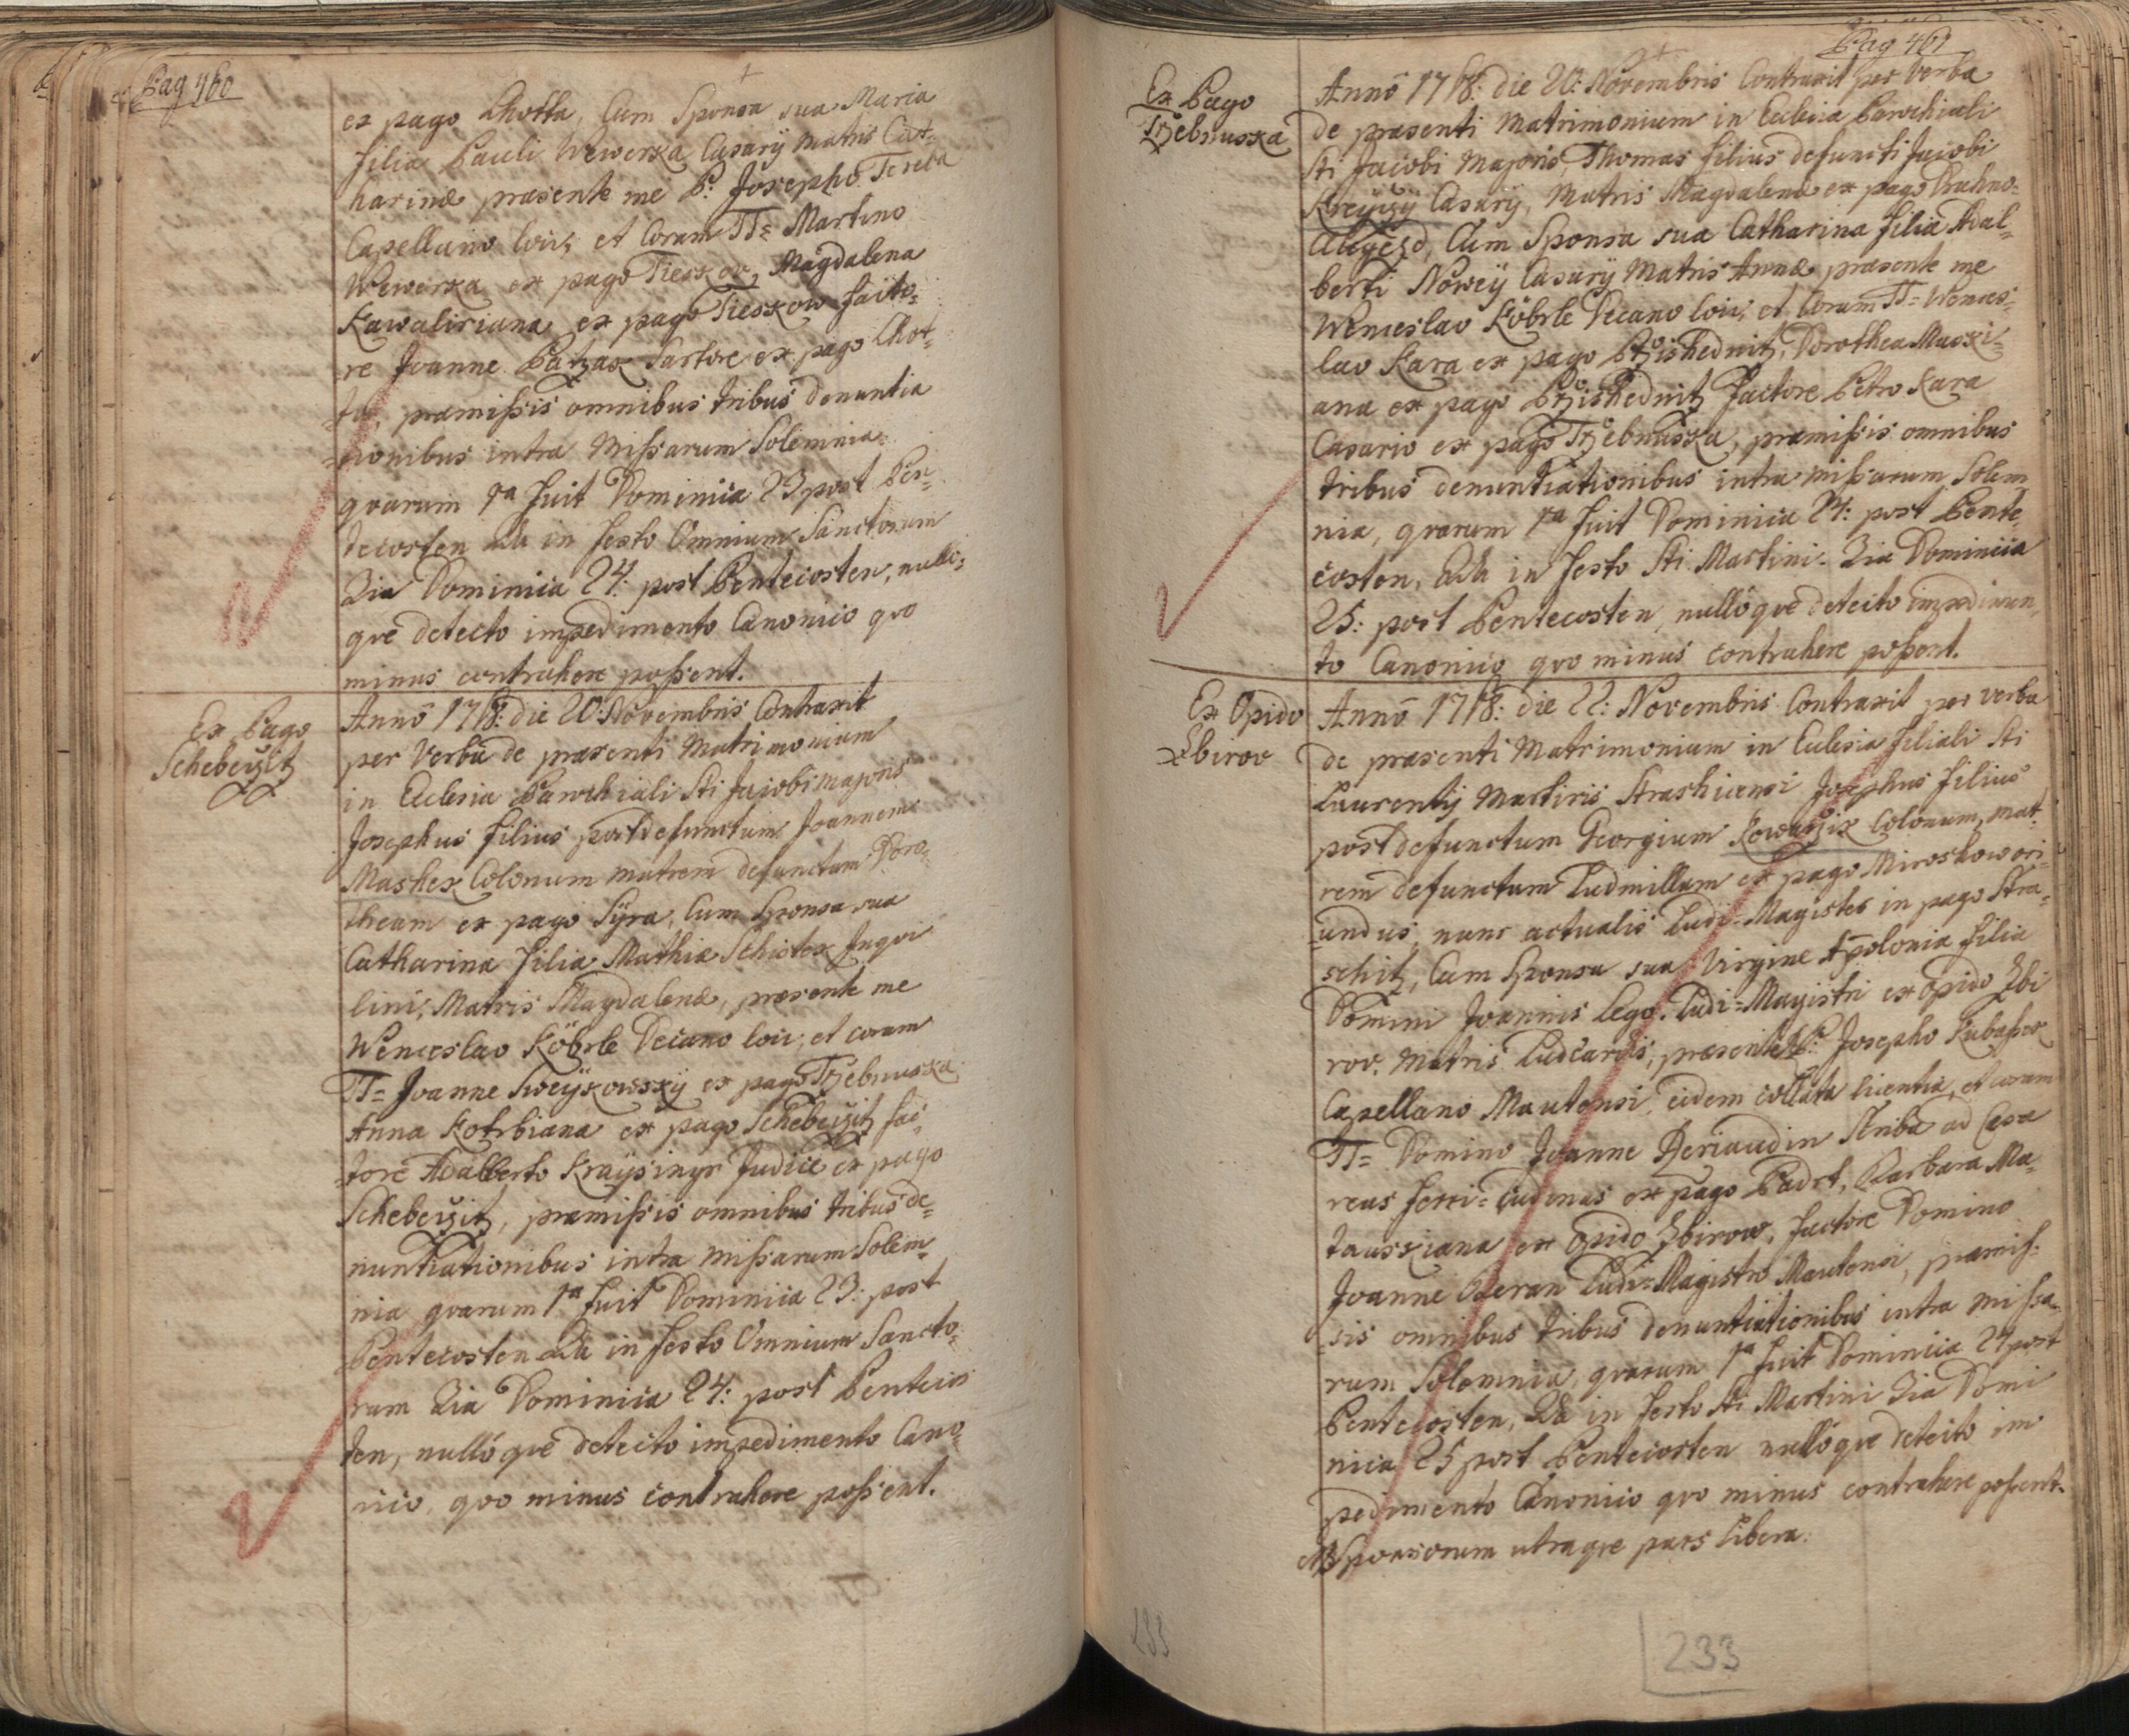 Pag 460
ex pago Lhotta, Cum Sponsa sua Maria
filia Pauli Wewerka Casarij Matris Cat=
harinæ præsente me P: Josepho Tereba
Capellano loci, et Coram TT= Martino
Wewerka ex pago Tieskow, Magdalena
Kawaliriana ex pago Tieskow facto=
re Joanne Patzak Sartore ex pago Lhot=
ta, præmissis omnibus tribus denuntia
=tionibus intra Missarum Solemnia
qvarum 1a fuit Dominica 23 post Pen=
tecosten 2da in festo Omnium Sanctorum
3ia Dominica 24: post Pentecosten, nullo=
qve detecto impedimento Canonico qvo
minus contrahere possent.
Ex Pago
Scheberzitz
Annô 1718: die 20: Novembris Contraxit
per Verba de præsenti Matrimonium
in Eclesia Parochiali Sti Jacobi majoris
Josephus filius post defunctum Joannem
Mashek Colonum matrem defunctam Doro=
theam ex pago Sÿra, Cum Sponsa sua
Catharina filia Mathiæ Schistek Inqvi
lini, Matris Magdalenæ, præsente me
Wenceslao Köbrle Decano loci, et coram
TT= Joanne Sweÿkowskÿ ex pago Trzebnuska
Anna Kotrbiana ex pago Scheberzitz fac=
tore Adalberto Kraÿsingr Judice ex pago
Scheberzitz, præmissis omnibus tribus de=
nuntiationibus intra Missarum Solem=
nia qvarum 1a fuit Dominica 23: post
Pentecosten 2da in festo Omnium Sancto=
rum 3ia Dominica 24: post Pentecos
ten, nullóqve detecto impedimento Cano
nico, qvo minus contrahere possent.
Pag 461
Ex Pago
Trzebnuska
Annô 1718: die 20: Novembris Contraxit per Verba
de præsenti Matrimonium in Eclesia Parochiali
Sti Jacobi Majoris, Thomas filius defuncti Jacobi
Kreÿczÿ Casarij, Matris Magdalenæ ex pago
Augezd, Cum Sponsa sua Catharina filia Adal=
berti Noweÿ Casarÿ Matris Annæ præsente me
Wenceslao Köbrle Decano loci, et Coram TT= Wences=
lao Kara ex pago Przishednitz, Dorothea
ana ex pago Przishednitz factore Petro Kara
Casario ex pago Trzebnuska, præmissis omnibus
tribus denuntiationibus intra missarum Solem
nia, qvarum 1a fuit Dominica 24: post Pente
costen, 2da in festo Sti Martini. 3ia Dominica
25: post Pentecosten, nullóqve detecto impedimen
to Canonico qvo minus contrahere possent.
Ex Opido
Zbirov
Annô 1718: die 22: Novembris Contraxit per verba
de præsenti Matrimonium in Eclesia filiali Sti
Laurentij Martiris Strashicensi Josephus filius
post defunctum Georgium Kowarzik Colonum, mat
rem defunctam Ludmillam ex pago Miroshow ori=
=undus, nunc actualis Ludi=Magister in pago Stra=
schitz, Cum Sponsa sua Virgine Apolonia filia
Domini Joannis Lego. Ludi=Magistri ex opido Zbi
rov. Matris Ludcardis, præsente P: Josepho Kubassek
Capellano Mautensi, eidem collata licentia, et coram
TT= Domino Joanne Scriba ad Cesa
reas ferri=Cudinas ex pago Padrt, Barbara Ma=
tauskiana ex opido Zbirow, factore Domino
Joanne Beran Ludi=Magistro Mautensi, præmis=
=sis omnibus tribus denuntiationibus intra Missa=
rum Solemnia, qvarum 1a fuit Dominica 24 post
Pentecosten, 2da in festo Sti Martini 3ia Domi
nica 25 post Pentecosten nullóqve detecto im
pedimento Canonico qvo minus contrahere possent.
NB Sponsorum utraqve pars libera.
233
233